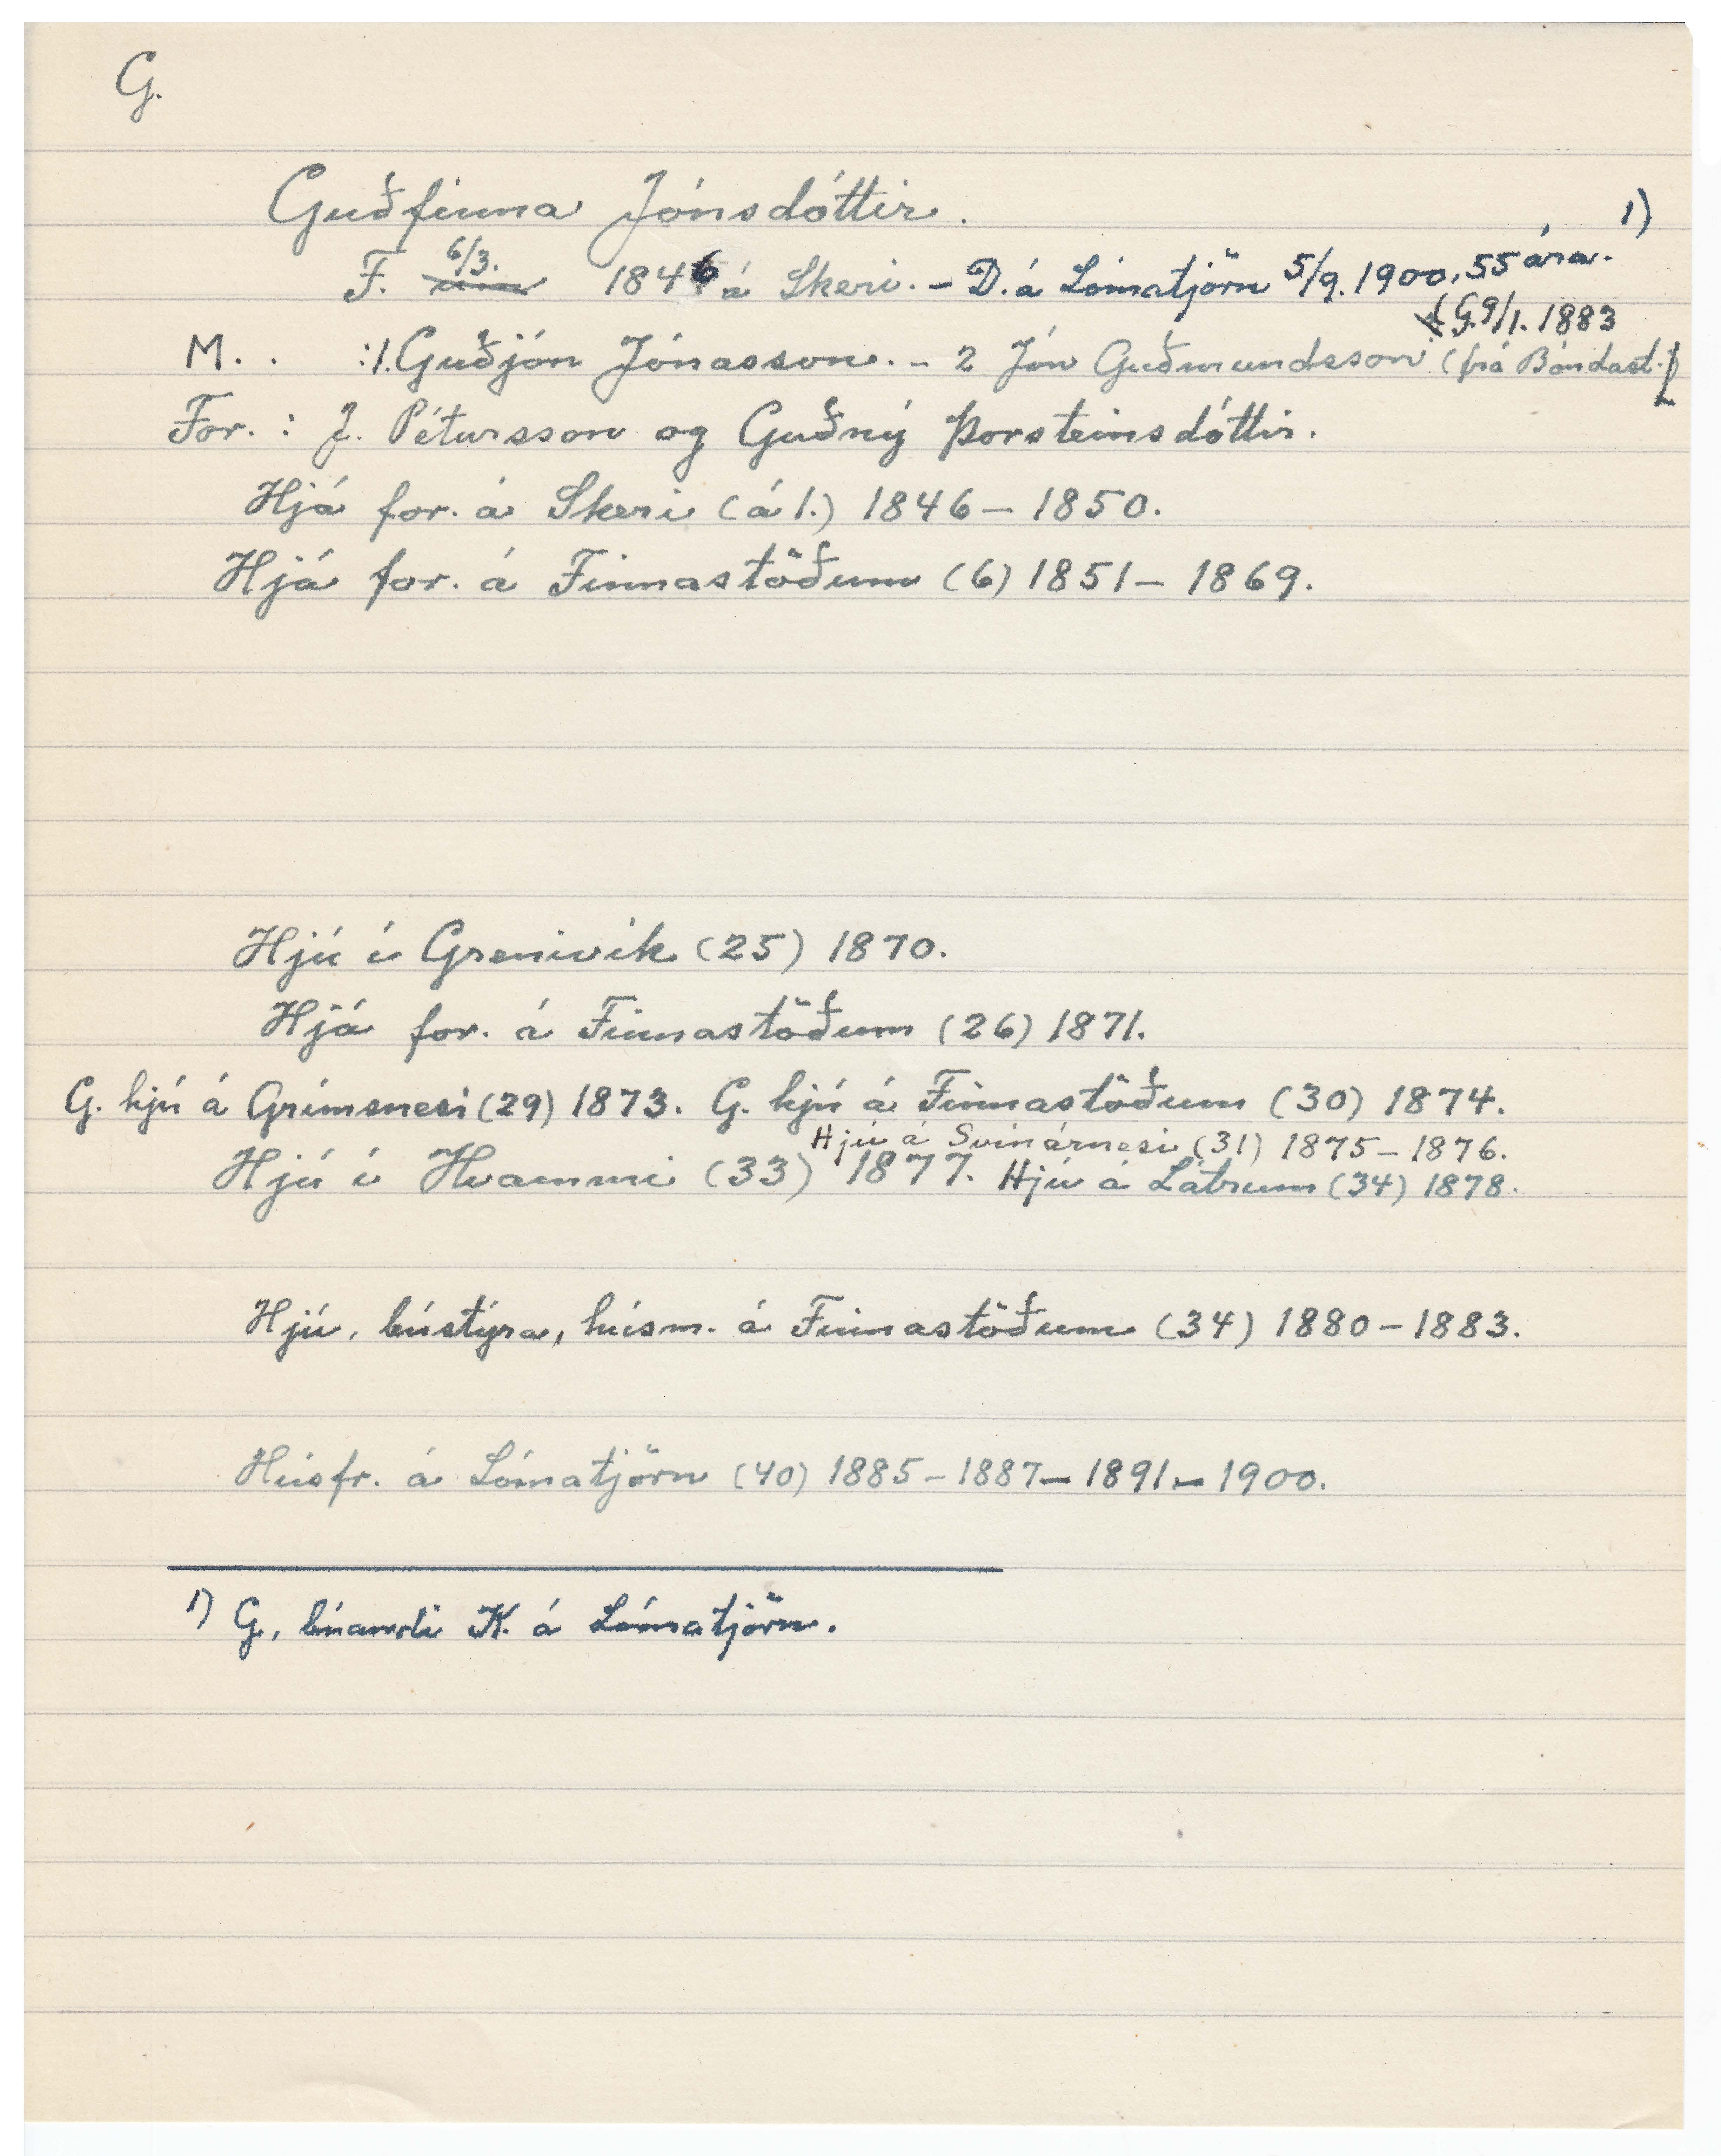 G.
Guðfinna Jónsdóttir.
F. 6/3. um 1846 á Skeri. – D. á Lómatjörn 5/9. 1900, 55 ára. 1)
(G. 9/1. 1883
M. . : 1. Guðjón Jónasson. – 2 Jón Guðmundsson (frá Bóndast.)
For. : J. Pétursson og Guðný Þorsteinsdóttir.
Hjá for. á Skeri (á 1.) 1846 – 1850.
Hjá for. á Finnastöðum (6) 1851 – 1869.
Hjú í Grenivík (25) 1870.
Hjá for. á Finnastöðum (26) 1871.
G. hjú á Grímsnesi (29) 1873. G. hjú á Finnastöðum (30) 1874.
Hjú á Svínárnesi (31) 1875 – 1876.
Hjú í Hvammi (33) 1877. Hjú á Látrum (34) 1878.
Hjú, bústýra, húsm. á Finnastöðum (34) 1880 – 1883.
Húsfr. á Lómatjörn (40) 1885 – 1887 – 1891 – 1900.
1) G., búandi K. á Lómatjörn.